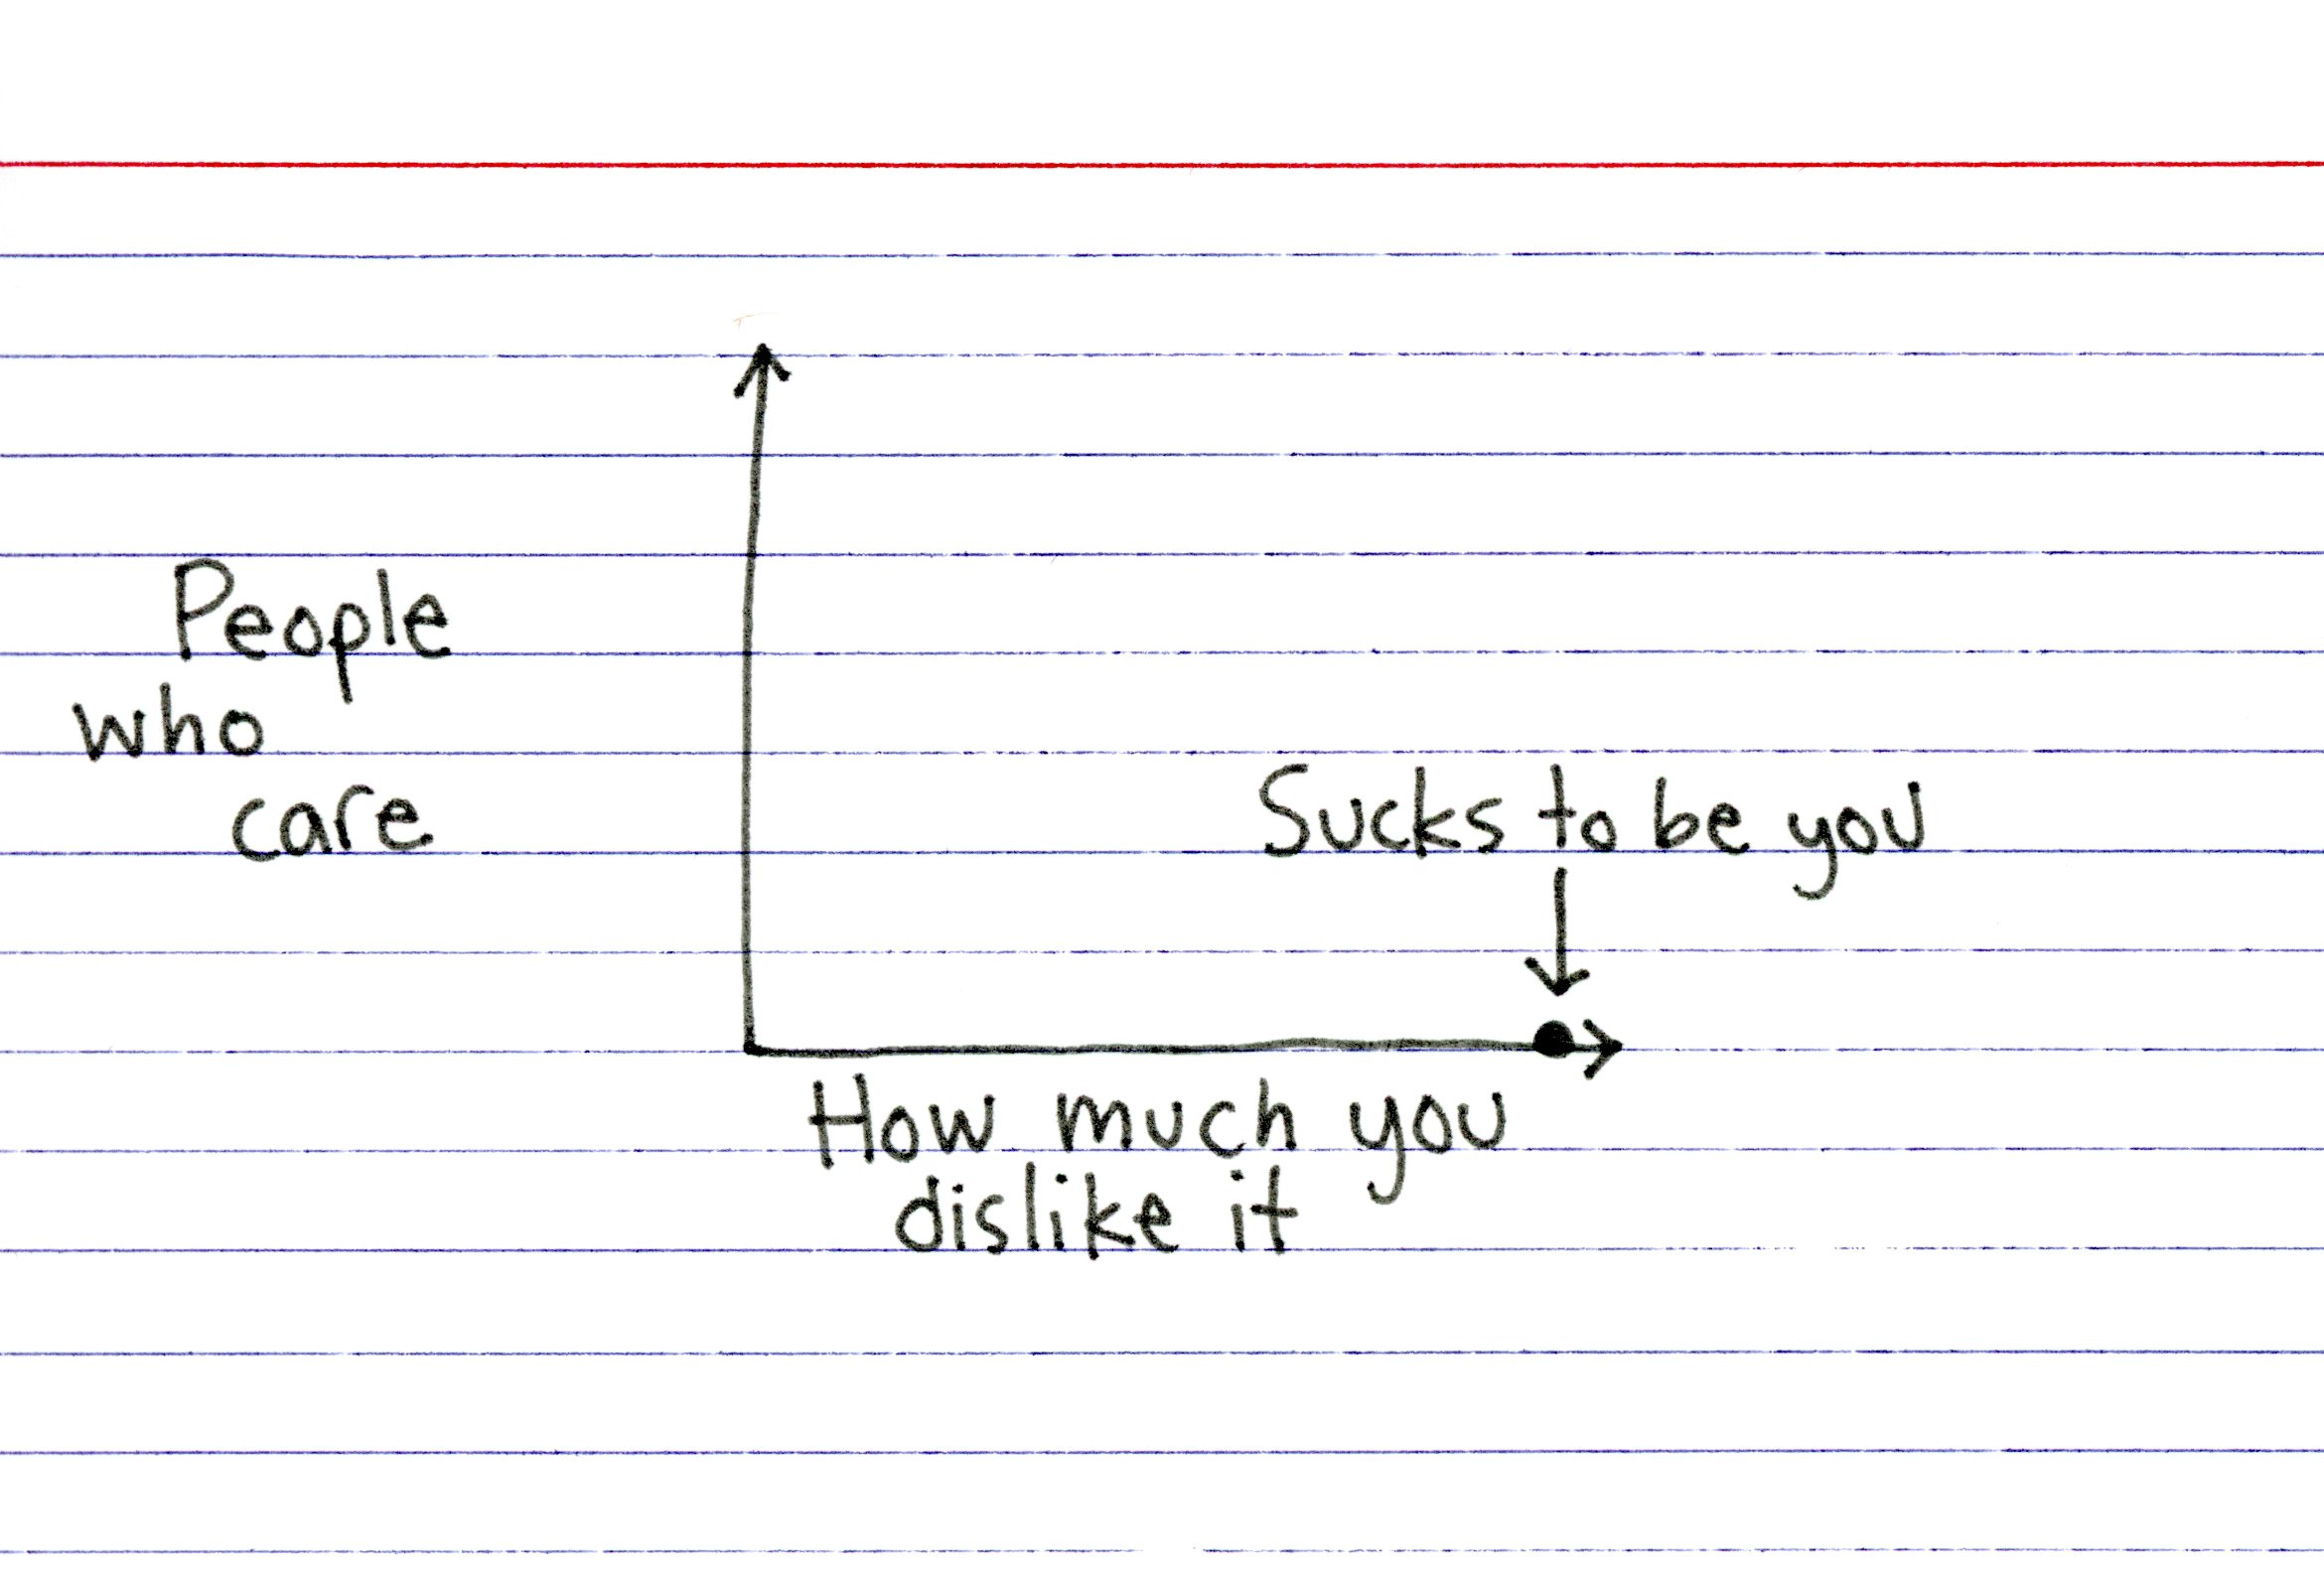 People
who
care
Sucks to be you
How much you
dislike it